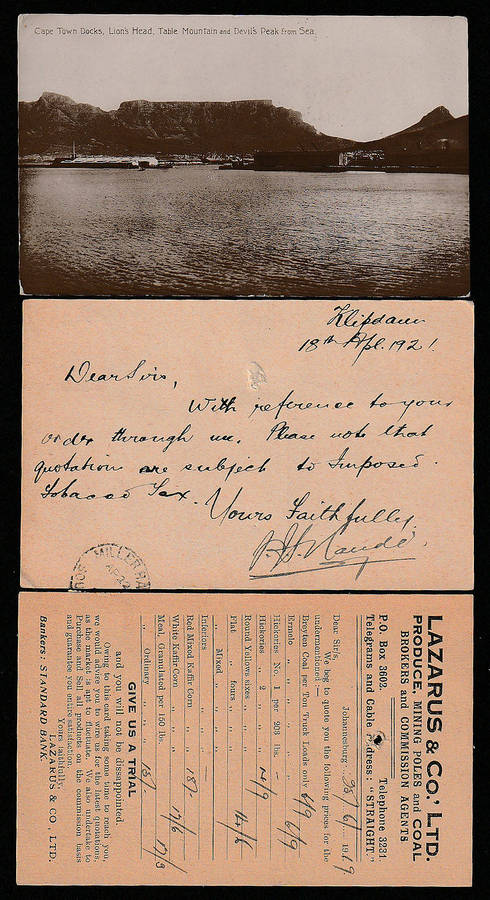 Cape Town Docks, Lion's Head, Table Mountain and Devil's Peak from Sea.
Klipdam
18th Apl. 1921.
Dear Sirs,
With reference to your
order through me. Please note that
quotation are subject to Imposed
Tobacco Tax.
Yours Faithfully,
P. J. Naudé.
MILLER
AP 22
LAZARUS & CO., LTD.
PRODUCE, MINING POLES and COAL
BROKERS and COMMISSION AGENTS
P.O. Box 3602. Telephone 3231.
Telegrams and Cable Address: "STRAIGHT"
Johannesburg 25/6/1919
Dear Sir/s,
We beg to quote you the following prices for the
undermentioned :—
Breyten Coal per Ton Truck Loads only 6/9
Ermelo " " " " 6/9
Hickories No. 1 per 203 lbs. —
Hickories " 2 " " 14/9
Round Yellows axes
Flat " fours " 14/6
" Mixed "
Inferiors " " —
Red Mixed Kaffir Corn " 18/-
White Kaffir Corn " " 17/6
Meal, Granulated per 180 lbs. 17/3
" Ordinary " " 15/-
GIVE US A TRIAL
and you will not be disappointed.
Owing to this card taking some time to reach you,
we would advise you to wire us for the latest quotations,
as the market is apt to fluctuate. We also undertake to
Purchase and Sell all products on the commission basis
and guarantee you entire satisfaction.
Yours faithfully,
LAZARUS & CO., LTD.
Bankers: STANDARD BANK.